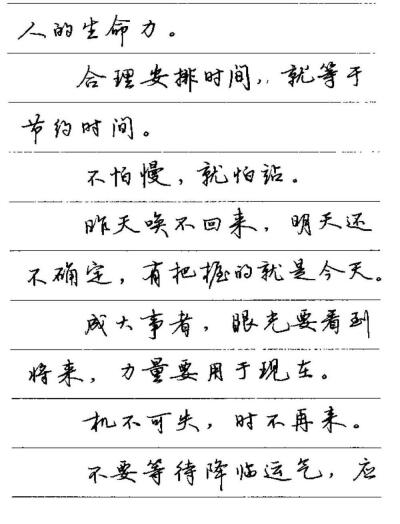 人的生命力。
合理安排时间，就等于
节约时间。
不怕慢，就怕站。
昨天唤不回来，明天还
不确定，有把握的就是今天。
成大事者，眼光要看到
将来，力量要用于现在。
机不可失，时不再来。
不要等待降临运气，应